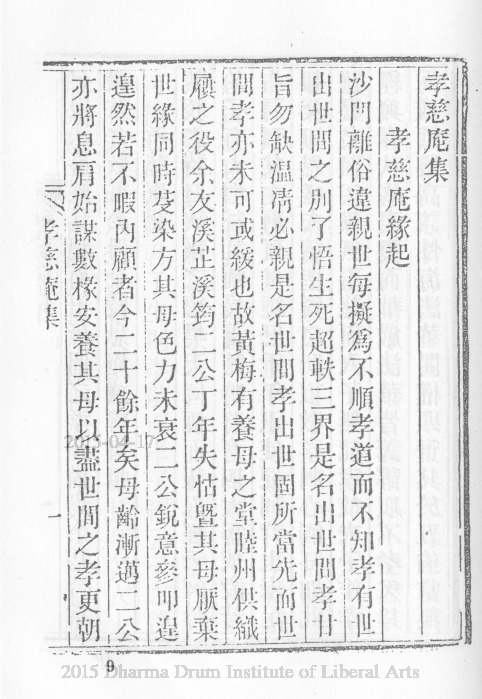 孝慈庵集
孝慈庵緣起
沙門離俗違親世每擬爲不順孝道而不知孝有世
出世間之別了悟生死超軼三界是名出世間孝甘
旨勿缺溫凊必親是名世間孝出世固所當先而世
間孝亦未可或緩也故黃梅有養母之堂睦州供織
屨之役余友溪芷溪筠二公丁年失怙曁其母厭棄
世緣同時芟染方其母色力未衰二公銳意參叩遑
遑然若不暇內顧者今二十餘年矣母齡漸邁二公
亦將息肩始謀數椽安養其母以盡世間之孝更朝
孝慈庵集
一
2015-04-17
9
2015 Dharma Drum Institute of Liberal Arts